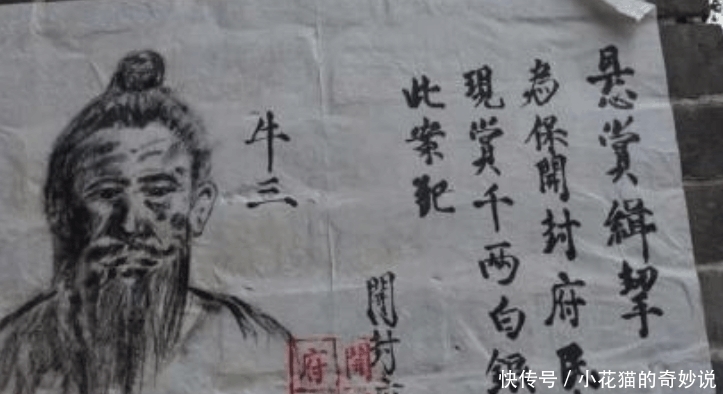 悬赏緝拏
為保開封府民
現賞千两白銀
此案犯
牛三
開封府
開
府
快传号 / 小花猫的奇妙说